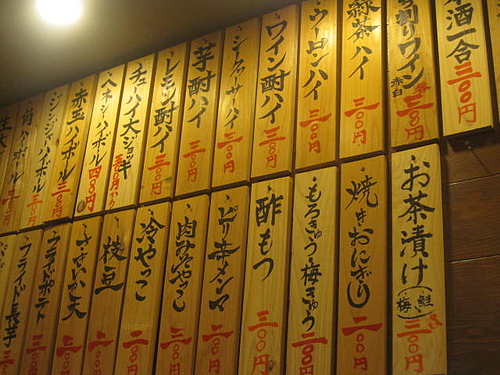 酒一合 三〇〇円
割りワイン 赤白 三〇〇円
緑茶ハイ 三〇〇円
ウーロンハイ 三〇〇円
ワイン酎ハイ 三〇〇円
三〇〇円
芋酎ハイ 三〇〇円
レモン酎ハイ 三〇〇円
チューハイ大ジョッキ
ハイボール 四〇〇円
赤玉ハイボール 三〇〇円
ジンジャーハイボール
角ハイボール
お茶漬け（梅 鮭） 三〇〇円
焼きおにぎり 二〇〇円
もろきゅう・梅きゅう 三〇〇円
酢もつ 三〇〇円
ピリ辛メンマ 二〇〇円
肉みそやっこ 三〇〇円
冷やっこ 二〇〇円
枝豆 二〇〇円
天 三〇〇円
フライドポテト 三〇〇円
フライド長芋